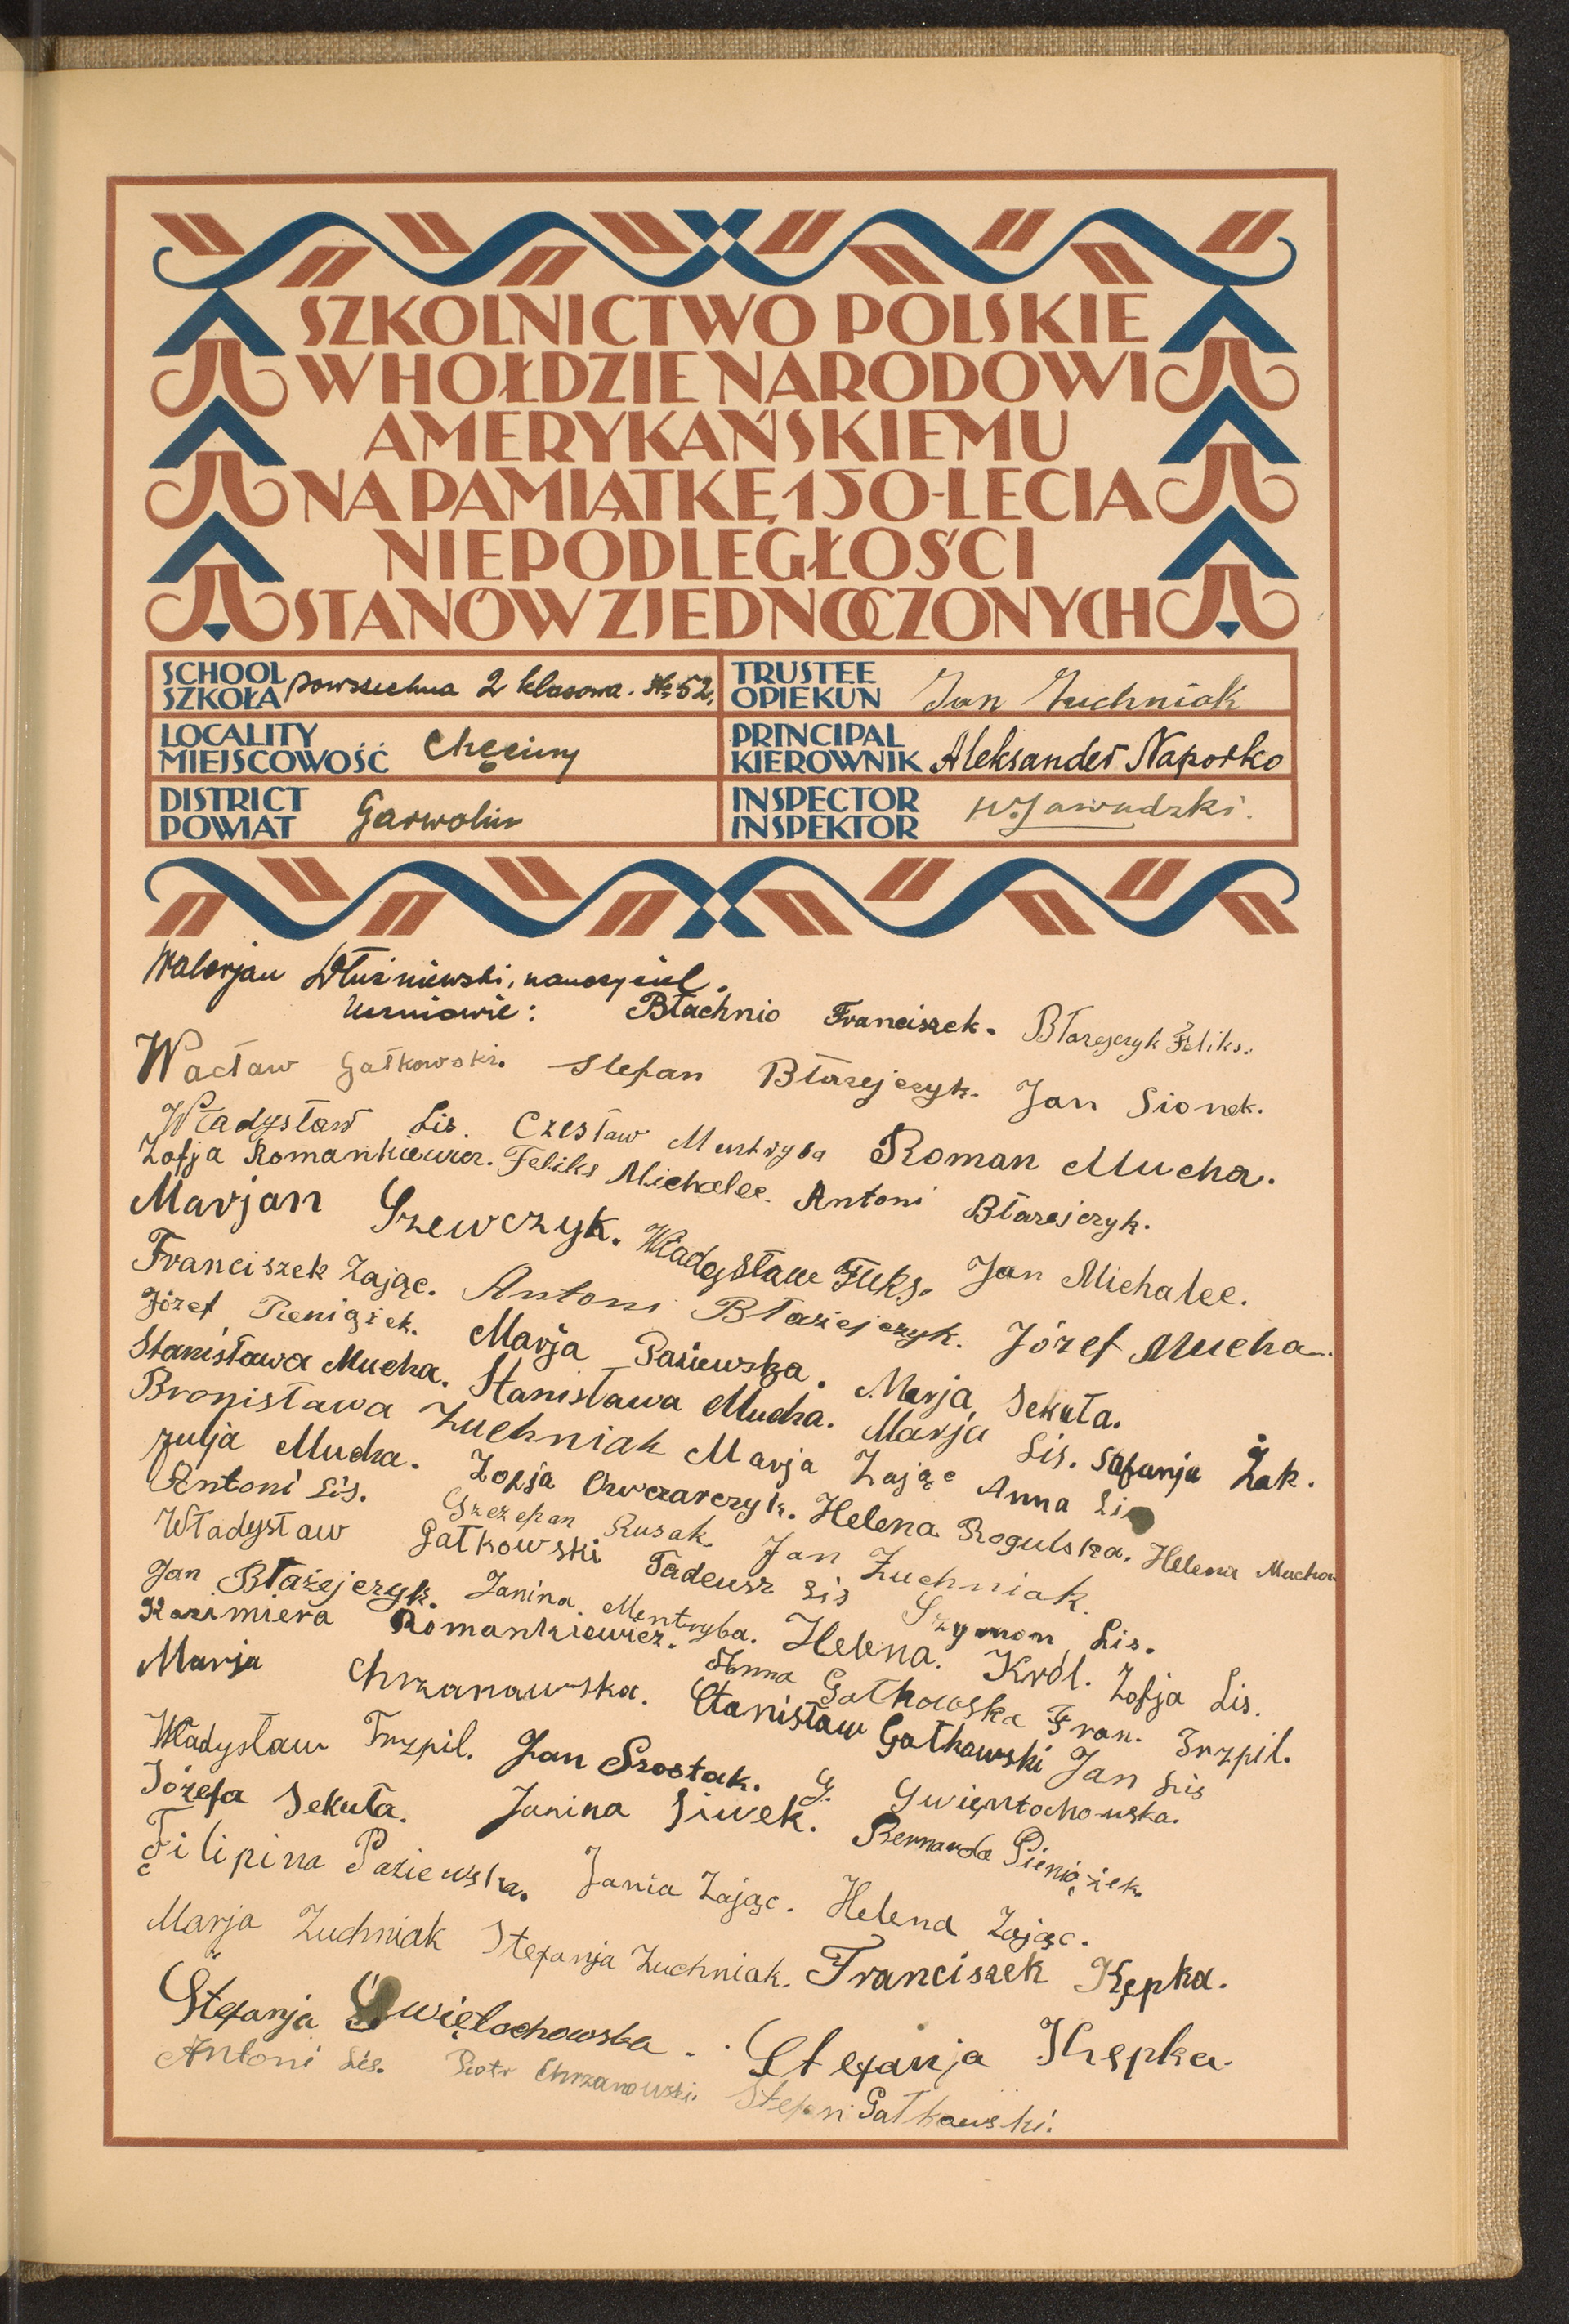 SZKOLNICTWO POLSKIE
W HOŁDZIE NARODOWI
AMERYKAŃSKIEMU
NA PAMIĄTKĘ 150-LECIA
NIEPODLEGŁOŚCI
STANÓW ZJEDNOCZONYCH
SCHOOL SZKOŁA powszechna 2 klasowa. № 52.
TRUSTEE OPIEKUN Jan Żuchniak
LOCALITY MIEJSCOWOŚĆ Chęciny
PRINCIPAL KIEROWNIK Aleksander Naporko
DISTRICT POWIAT Garwolin
INSPECTOR INSPEKTOR W. Zawadzki.
Walerjan Dłużniewski, nauczyciel.
Uczniowie: Błachnio Franciszek. Błażejczyk Feliks.
Wacław Gałkowski. Stefan Błazejczyk. Jan Sionek.
Władysław Lis. Czesław Mentryba Roman Mucha.
Zofja Romankiewicz. Feliks Michalec. Antoni Błazejczyk.
Marjan Szewczyk. Władysław Fuks. Jan Michalec.
Franciszek Zając. Antoni Błaziejczyk. Józef Mucha.
Józef Pieniążek. Marja Paziewska. Marja Sekuła.
Stanisława Mucha. Stanisława Mucha. Marja Lis. Stefanja Żak.
Bronisława Żuchniak Marja Zając Anna Lis
Julja Mucha. Zofja Owczarczyk. Helena Rogulska. Helena Mucha
Antoni Lis. Szczepan Rusak. Jan Żuchniak.
Władysław Gałkowski Tadeusz Lis Szymon Lis.
Jan Błażejczyk. Janina Mentryba. Helena. Król. Zofja Lis.
Kazimiera Romankiewicz. Anna Gałkowska Fran. Trzpil.
Marja Chrzanowska. Stanisław Gałkowski Jan Lis
Władysław Trzpil. Jan Szostak. S. Swięntochowska.
Józefa Sekuła. Janina Siwek. Bernarda Pieniążek.
Filipina Paziewska. Jania Zając. Helena Zając.
Marja Żuchniak Stefanja Żuchniak. Franciszek Kępka.
Stefanja Swiętochowska. Stefanja Kępka.
Antoni Lis. Piotr Chrzanowski. Stefan Gałkowski.